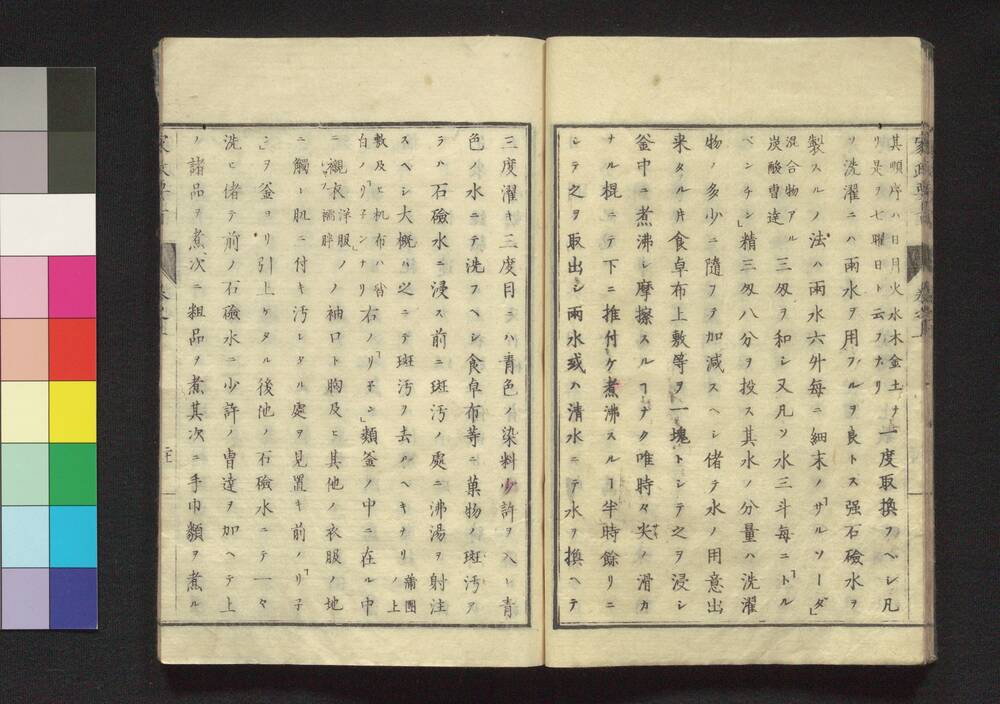 其順序ハ日月火水木金土ナリ是ヲ七曜日ト云フナリ一度取換フヘシ凡
ソ洗濯ニハ雨水ヲ用フルヲ良トス强石鹼水ヲ
製スルノ法ハ雨水六升每ニ細末ノ「サルソーダ」
混合物アル炭酸曹達三匁ヲ和シ又凡ソ水三斗每ニ「トル
ベンチン」精三匁八分ヲ投ス其水ノ分量ハ洗濯
物ノ多少ニ隨フヲ加減スヘシ偖テ水ノ用意出
来タル片食卓布上敷等ヲ一塊トシテ之ヲ浸シ
釜中ニ煮沸シ摩擦スルヿナク唯時々尖ノ滑カ
ナル棍ニテ下ニ推付ケ煮沸スルヿ半時餘リニ
シテ之ヲ取出シ雨水或ハ清水ニテ水ヲ換ヘテ
三度濯キ三度目ニハ青色ノ染料少許ヲ入レ青
色ノ水ニテ洗フヘシ食卓布等ニ菓物ノ斑汚ア
ラハ石鹼水ニ浸ス前ニ斑汚ノ處ニ沸湯ヲ射注
スヘシ大概ハ之ニテ斑汚ヲ去ルヘキナリ蒲團ノ上
敷及ヒ机布ハ皆白ノ「リ子ン」ナリ右ノ「リ子ン」類釜ノ中ニ在ル中
ニ襯衣洋服ノ襦袢ノ袖口ト胸及ヒ其他ノ衣服ノ地
ニ觸レ肌ニ付キ汚レタル處ヲ見置キ前ノ「リ子
ン」ヲ釜ヨリ引上ケタル後他ノ石鹼水ニテ一々
洗ヒ偖テ前ノ石鹼水ニ少許ノ曹達ヲ加ヘテ上
ノ諸品ヲ煮次ニ粗品ヲ煮其次ニ手巾類ヲ煮ル